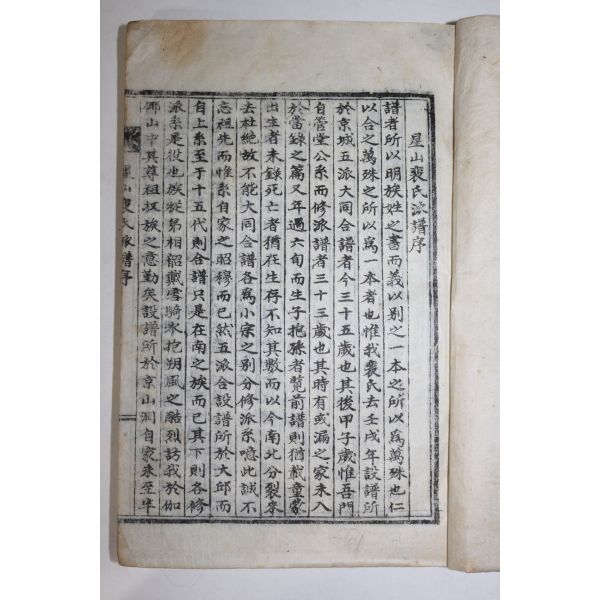 星山裴氏派譜序
譜者所以明族姓之書而義以別之一本之所以爲萬殊也仁
以合之萬殊之所以爲一本者也惟我裴氏去壬戌年設譜所
於京城五派大同合譜者今三十五歲也其後甲子歲惟吾門
自管堂公系而修派譜者三十三歲也其時有或漏之家未入
於當錄之篇又年過六旬而生子抱孫者覽前譜則猶載童蒙
出生者未錄死亡者猶在生存不知其數而以今南北分裂來
去杜絶故不能大同合譜各爲小宗之別分修派系噫此誠不
忘祖先而惟系自家之昭穆而已然五派合設譜所於大邱而
自上系至于十五代則合譜只是在南之族而已其下則各修
派系是役也族從昴相韶戴雪騎氷抱朔風之酷烈訪我於伽
倻山中其尊祖収族之意勤矣設譜所於京山洞自家未至半
星山裴氏派譜序